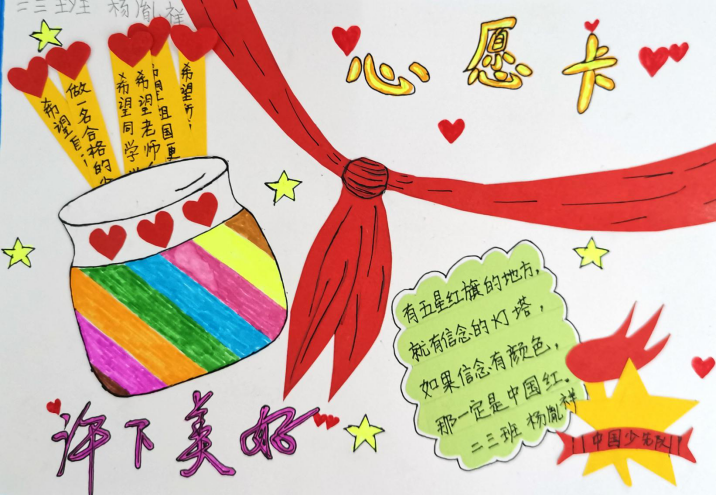 二三班 杨胤祥
心愿卡
希望
做一名合格的
希望同学
希望老师
祖国更
希望
有五星红旗的地方，
就有信念的灯塔，
如果信念有颜色，
那一定是中国红。
二三班 杨胤祥
中国少先队
许下美好